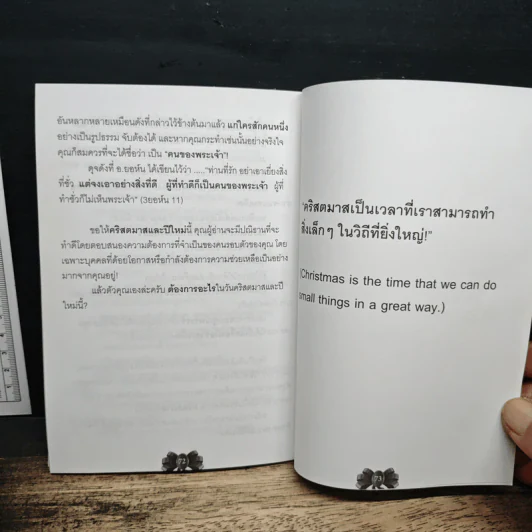 อันหลากหลายเหมือนดังที่กล่าวไว้ข้างต้นมาแล้ว แก่ใครสักคนหนึ่ง
อย่างเป็นรูปธรรม จับต้องได้ และหากคุณกระทำเช่นนั้นอย่างจริงใจ
คุณก็สมควรที่จะได้ชื่อว่า เป็น "คนของพระเจ้า"!
ดุจดังที่ อ.ยอห์น ได้เขียนไว้ว่า ....."ท่านที่รัก อย่าเอาเยี่ยงสิ่ง
ที่ชั่ว แต่จงเอาอย่างสิ่งที่ดี ผู้ที่ทำดีก็เป็นคนของพระเจ้า ผู้ที่
ทำชั่วก็ไม่เห็นพระเจ้า" (3ยอห์น 11)
ขอให้คริสตมาสและปีใหม่นี้ คุณผู้อ่านจะมีปณิธานที่จะ
ทำดีโดยตอบสนองความต้องการที่จำเป็นของคนรอบตัวของคุณ โดย
เฉพาะบุคคลที่ด้อยโอกาสหรือกำลังต้องการความช่วยเหลือเป็นอย่าง
มากจากคุณอยู่!
แล้วตัวคุณเองล่ะครับ ต้องการอะไรในวันคริสตมาสและปี
ใหม่นี้?
72
"คริสตมาสเป็นเวลาที่เราสามารถทำ
สิ่งเล็กๆ ในวิถีที่ยิ่งใหญ่!"
(Christmas is the time that we can do
small things in a great way.)
73